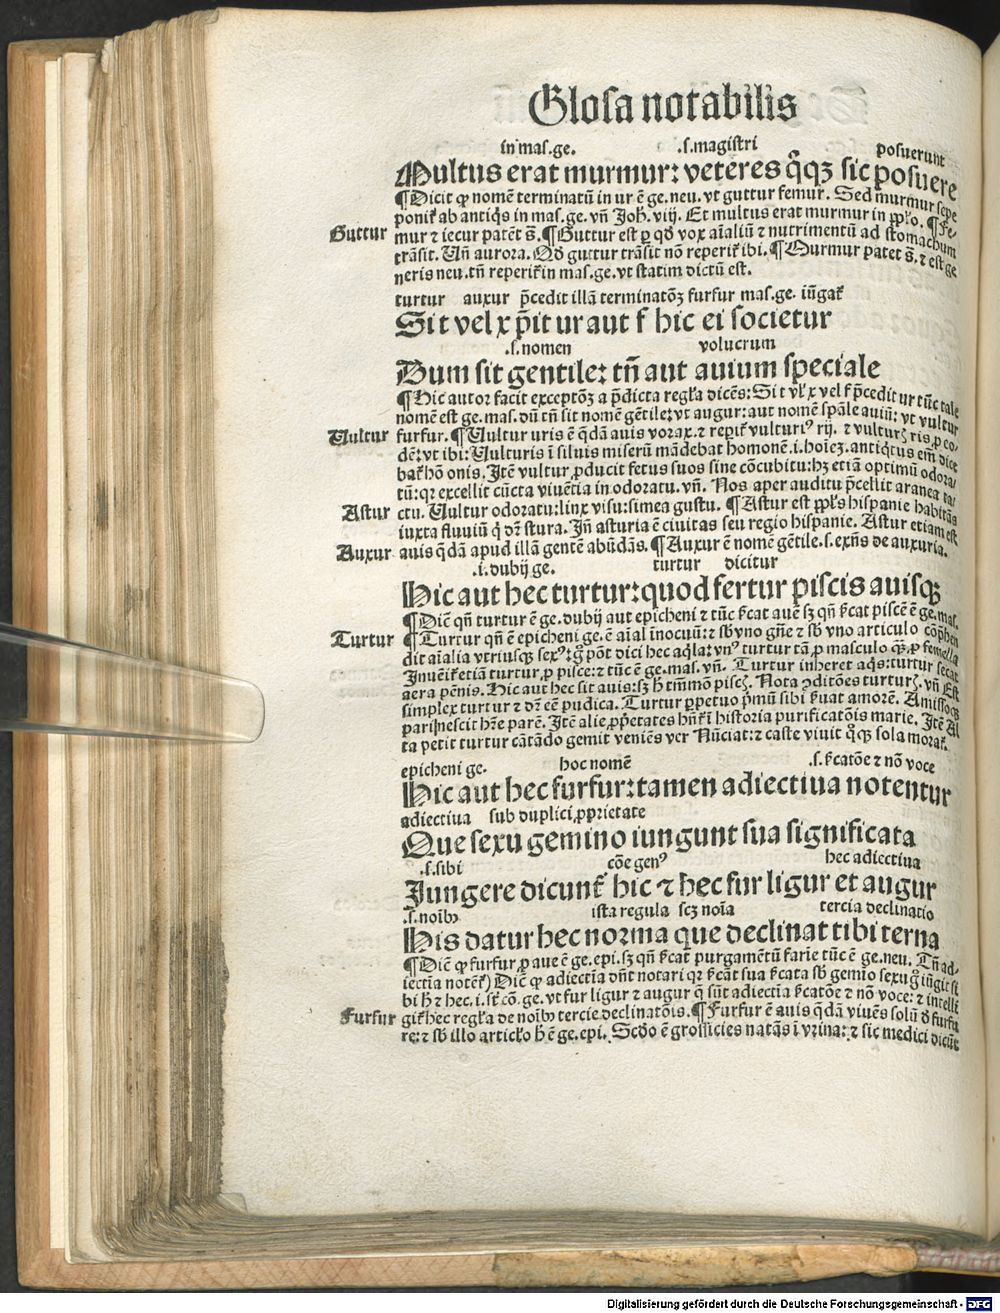 Glosa notabilis
in mas.ge. .s.magistri posuerunt
Multus erat murmur: veteres q̃qꝫ sic posuere
¶Dicit ꝙ nomē terminatū in ur ē ge.neu. vt guttur femur. Sed murmur sepe
ponit̃ ab antiq̃s in mas.ge. vñ Joħ. vij. Et multus erat murmur in ppl̃o. ¶Fe-
Guttur mur ⁊ iecur patēt s̃. ¶Guttur est ꝑ qđ vox aīaliū ⁊ nutrimentū ad stomachum
trāsit. Uñ aurora. Qđ guttur trāsit nō reperit̃ ibi. ¶Murmur patet s̃. ⁊ est ge
neris neu. tñ reperit̃ in mas.ge. vt statim dictū est.
turtur auxur p̄cedit illā terminatōꝫ furfur mas.ge. iūgat̃
Si t vel x p̄it ur aut f hic ei societur
.s.nomen volucrum
Dum sit gentile: tñ aut auium speciale
¶Hic autor facit exceptōꝫ a p̄dicta regl̃a dicēs: Si t vl̃ x vel f p̄cedit ur tūc tale
nomē est ge.mas. dū tñ sit nomē gētile: vt augur: aut nomē spāle auiū: vt vultur
Uultur furfur. ¶Uultur uris ē q̄dā auis vorax. ⁊ reperit̃ vulturiꝰ rij. ⁊ vulturꝫ ris, ꝓ eo-
dē: vt ibi: Uulturis ī siluis miserū mādebat homonē .i. hoīeꝫ. antiq̃tus em̄ dice
bat̃ hō onis. Itē vultur ꝓducit fetus suos sine cōcubitu: hꝫ etiā optimū odora-
tū: qꝛ excellit cūcta viuētia in odoratu. vñ. Nos aper auditu p̄cellit aranea ta-
Astur ctu. Uultur odoratu: linx visu: simea gustu. ¶Astur est ppl̃s hispanie habitās
iuxta fluuiū q̄ dꝛ̄ stura. Iñ asturia ē ciuitas seu regio hispanie. Astur etiam est
Auxur auis q̄dā apud illā gentē abūdās. ¶Auxur ē nomē gētile .s. exñs de auxuria.
.i. dubij ge. turtur dicitur
Hic aut hec turtur: quod fertur piscis auisqꝫ
¶Diē qñ turtur ē ge. dubij aut epicheni ⁊ tūc s̃cat auē sꝫ qñ s̃cat piscē ē ge.mas.
Turtur ¶Turtur qñ ē epicheni ge. ē aīal īnocuū: ⁊ sb̃ vno gñe ⁊ sb̃ vno articulo cōp̄hen
dit aīalia vtriusqꝫ sexꝰ: g̊ pōt dici hec aq̄la: vnꝰ turtur tā ꝓ masculo qꝫ ꝓ femella
Inuēit̃ etiam turtur, ꝓ pisce: ⁊ tūc ē ge. mas. vñ. Turtur inheret aq̄s: turtur secat
aera pēnis. Hic aut hec sit auis: sꝫ h̃ tm̄mō piscꝫ. Nota ꝯditōes turturꝫ. vñ Est
simplex turtur ⁊ dꝛ̄ eē pudica. Turtur ꝑpetuo p̄mū sibi s̃uat amorē. Amissoqꝫ
pari nescit hr̃e parē. Itē alie ꝓp̄etates hñt̃ ī historia purificatōis marie. Itē Al
ta petit turtur cātādo gemit veniēs ver Nūciat: ⁊ caste viuit q̊qꝫ sola morat̃.
epicheni ge. hoc nomē .s. s̃catōe ⁊ nō voce
Hic aut hec furfur: tamen adiectiua notentur
adiectiua sub duplici ꝓprietate
Que sexu gemino iungunt sua significata
.s.sibi cōe genꝰ hec adiectiua
Jungere dicunt̃ hic ⁊ hec fur ligur et augur
.s. noībꝫ ista regula scꝫ noīa tercia declinatio
His datur hec norma que declinat tibi terna
¶Diē ꝙ furfur, ꝓ aue ē ge. epi. sꝫ qñ s̃cat purgamētū farie tūc ē ge. neu. Tñ ad-
iectia notēt̃) Diē ꝙ adiectia dñt notari qꝛ s̃cāt sua s̃cata sb̃ gemio sexu g̊ iūgit si
bi h̃ ⁊ hec .i. st̃ cō. ge. vt fur ligur ⁊ augur q̄ sūt adiectia s̃catōe ⁊ nō voce: ⁊ intelli
Furfur git̃ hec regl̃a de noībꝫ tercie declinatōis. ¶Furfur ē auis q̄dā viuēs solū đ furfu
re: ⁊ sb̃ illo articl̃o h̃ ē ge. epi. Scđo ē grossicies natās ī vrina: ⁊ sic medici dicūt
Digitalisierung gefördert durch die Deutsche Forschungsgemeinschaft - DFG